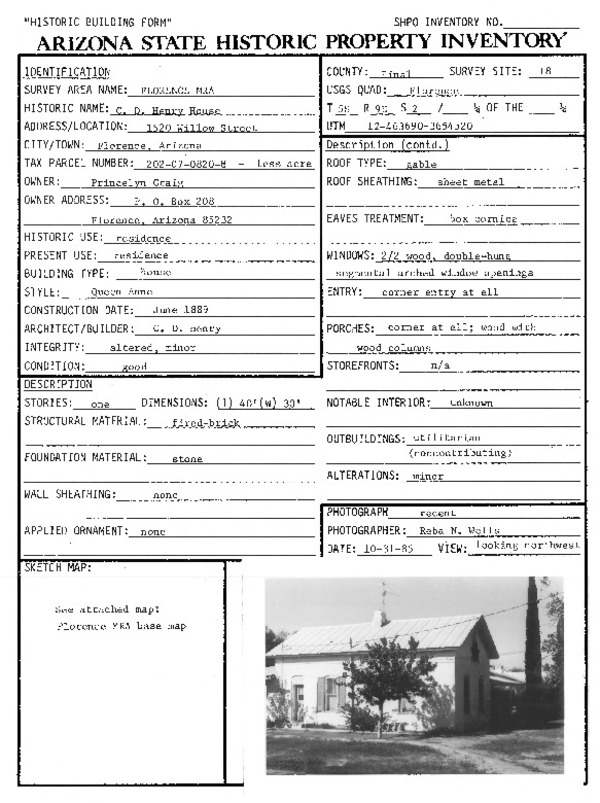 "HISTORIC BUILDING FORM"
SHPO INVENTORY NO.
ARIZONA STATE HISTORIC PROPERTY INVENTORY
IDENTIFICATION
SURVEY AREA NAME: FLORENCE MRA
HISTORIC NAME: C. D. Henry House
ADDRESS/LOCATION: 1520 Willow Street
CITY/TOWN: Florence, Arizona
TAX PARCEL NUMBER: 202-07-0820-8 - Less acre
OWNER: Princelyn Craig
OWNER ADDRESS: P. O. Box 208
Florence, Arizona 85232
HISTORIC USE: residence
PRESENT USE: residence
BUILDING TYPE: house
STYLE: Queen Anne
CONSTRUCTION DATE: June 1889
ARCHITECT/BUILDER: C. D. Henry
INTEGRITY: altered, minor
CONDITION: good
COUNTY: Pinal SURVEY SITE: 18
USGS QUAD: Florence
T 5S R 9E S 2 / ¼ OF THE ¼
UTM 12-463690-3654520
Description (contd.)
ROOF TYPE: gable
ROOF SHEATHING: sheet metal
EAVES TREATMENT: box cornice
WINDOWS: 2/2 wood, double-hung
segmental arched window openings
ENTRY: corner entry at ell
PORCHES: corner at ell; wood with
wood columns
STOREFRONTS: n/a
NOTABLE INTERIOR: unknown
OUTBUILDINGS: utilitarian
(noncontributing)
ALTERATIONS: minor
DESCRIPTION
STORIES: one DIMENSIONS: (l) 40'(w) 30'
STRUCTURAL MATERIAL: fired-brick
FOUNDATION MATERIAL: stone
WALL SHEATHING: none
APPLIED ORNAMENT: none
PHOTOGRAPH recent
PHOTOGRAPHER: Reba N. Wells
DATE: 10-31-85 VIEW: looking northwest
SKETCH MAP:
See attached map:
Florence MRA base map